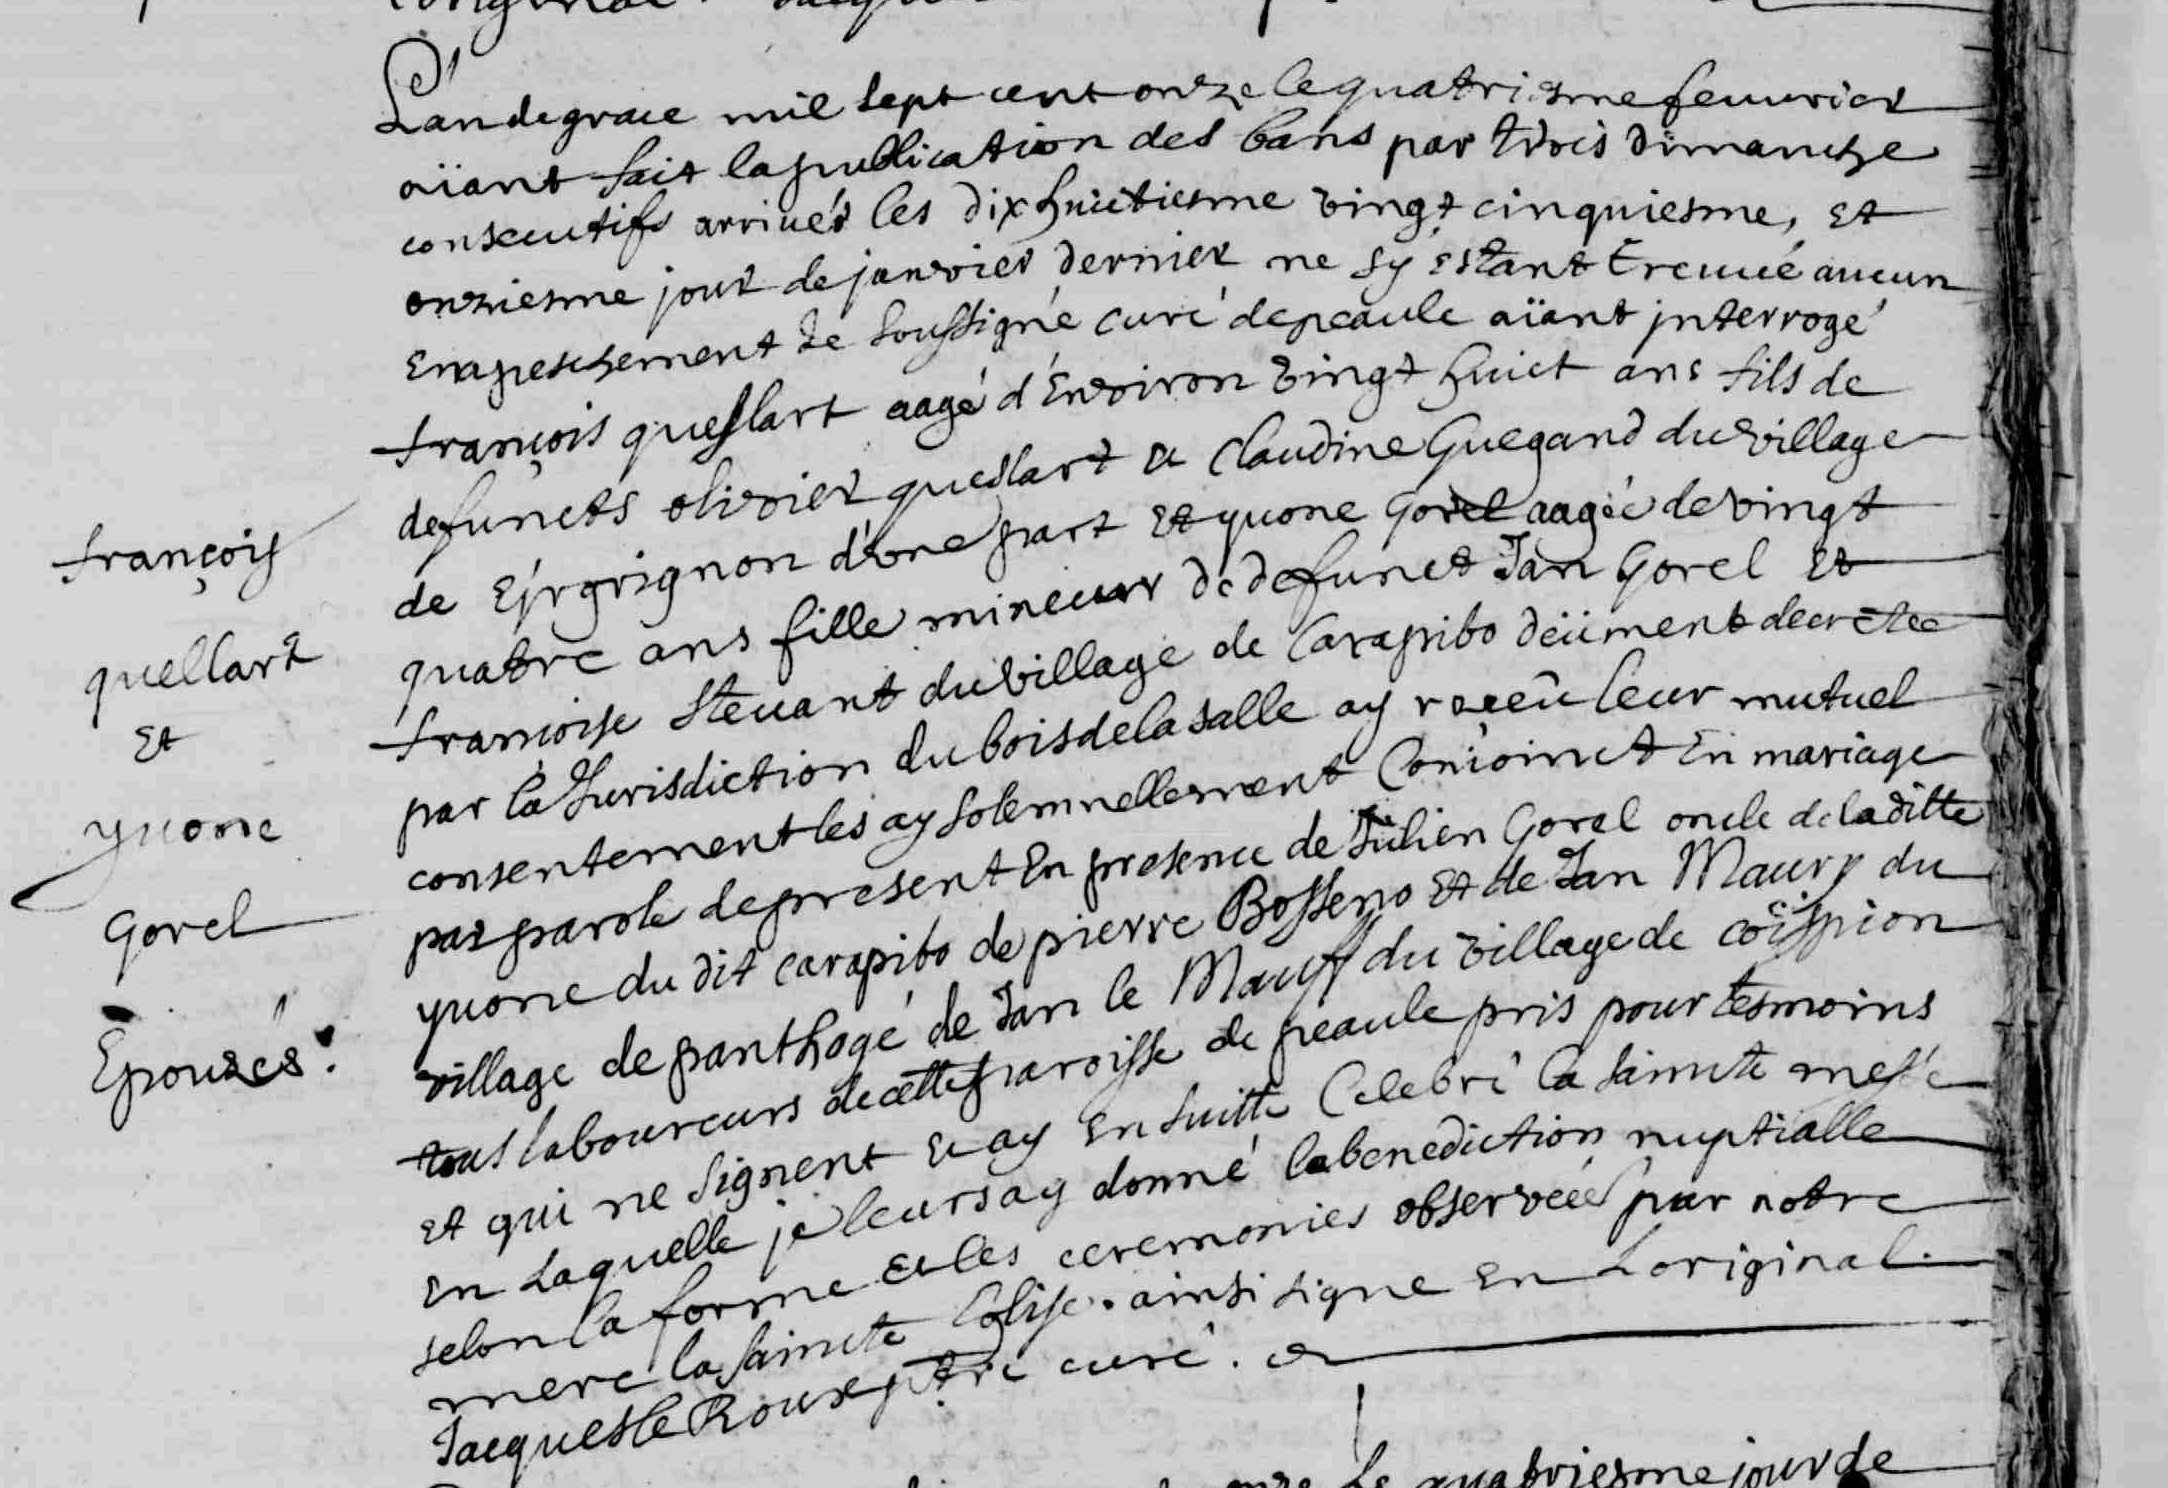 L'an de grace mil sept cent onze le quatriesme feuvrier
aïant fait la publication des bans par trois dimanche
consecutifs arrivés les dixhuictiesme vingt cinquiesme, et
onziesme jour de janvier dernier ne sy estant trouvé aucun
Empeschement Je soussigné curé de peaule aïant interrogé
françois queslart aagé d'Environ vingt huict ans fils de
defuncts olivier queslart et Claudine Guegand du village
de d'vne part Et yuone Gorel aagée de vingt
quatre ans fille mineure de defunct Jan Gorel Et
françoise Steuant du village de Carapibo deüment decretée
par la Jurisdiction du bois de la salle ay receu leur mutuel
consentement les ay solemnellement Conioinct En mariage
par parole de present En presence de Julien Gorel oncle de laditte
yuone du dit carapibo de pierre Bosseno Et de Jan Maury du
village de panthogé de Jan le Mauff du village de
tous laboureurs de cette paroisse de peaule pris pour tesmoins
Et qui ne signent et ay En suitte Celebré la saincte messe
En laquelle je leurs ay donné la benediction nuptialle
selon la forme et les ceremonies observeés par notre
mere la saincte Eglise. ainsi signe En L'original.
Jacques le Roux ptre curé.
françois
quellart
Et
yuone
Gorel
Epousés.
quatriesme jour de